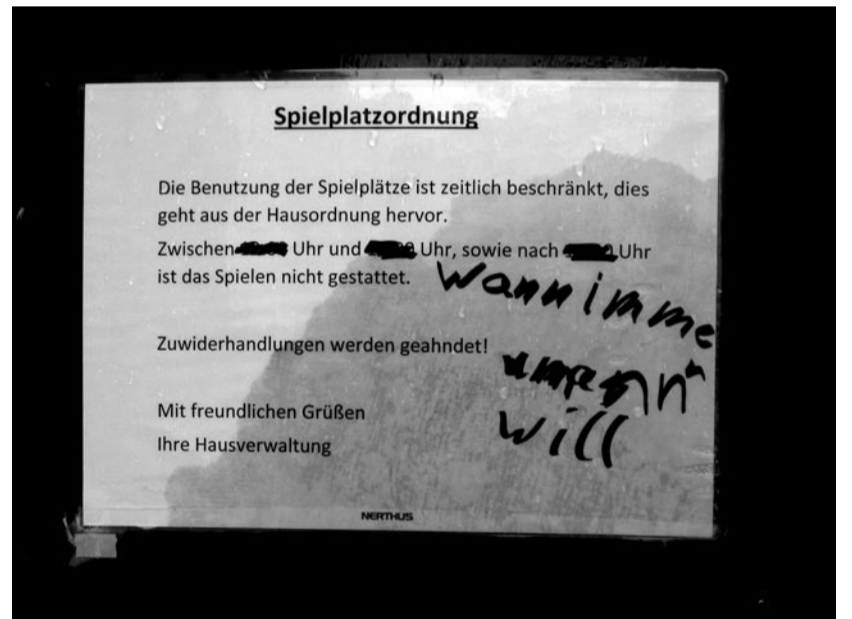 Spielplatzordnung
Die Benutzung der Spielplätze ist zeitlich beschränkt, dies
geht aus der Hausordnung hervor.
Zwischen Uhr und Uhr, sowie nach Uhr
ist das Spielen nicht gestattet.
Wann imme
Zuwiderhandlungen werden geahndet!
will
Mit freundlichen Grüßen
Ihre Hausverwaltung
NERTHUS